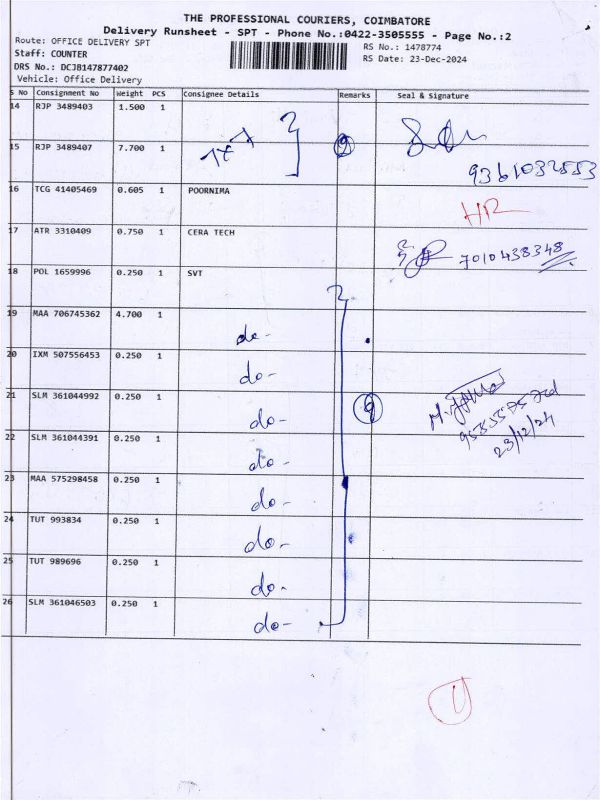 THE PROFESSIONAL COURIERS, COIMBATORE
Delivery Runsheet - SPT - Phone No.:0422-3505555 - Page No.:2
Route: OFFICE DELIVERY SPT
RS No.: 1478774
Staff: COUNTER
RS Date: 23-Dec-2024
DRS No.: DCJB147877402
Vehicle: Office Delivery
S No Consignment No Weight PCS Consignee Details Remarks Seal & Signature
14 RJP 3489403 1.500 1
15 RJP 3489407 7.700 1
9361032553
16 TCG 41405469 0.605 1 POORNIMA
HR
17 ATR 3310409 0.750 1 CERA TECH
7010438348
18 POL 1659996 0.250 1 SVT
19 MAA 706745362 4.700 1 do-
20 IXM 507556453 0.250 1 do-
21 SLM 361044992 0.250 1 do- 9
22 SLM 361044391 0.250 1 do-
23/12/24
23 MAA 575298458 0.250 1 do-
24 TUT 993834 0.250 1 do-
25 TUT 989696 0.250 1 do-
26 SLM 361046503 0.250 1 do-
1